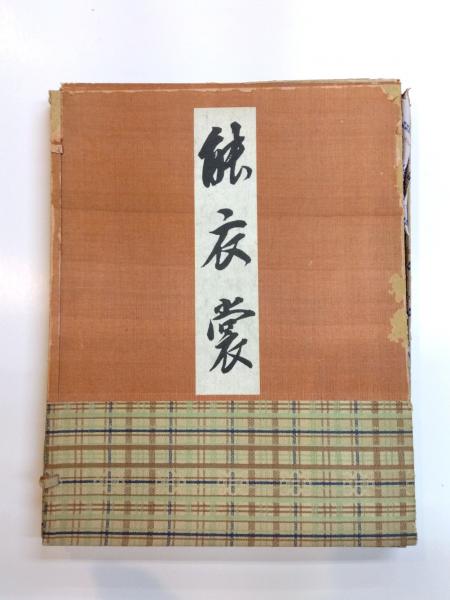 能衣裳